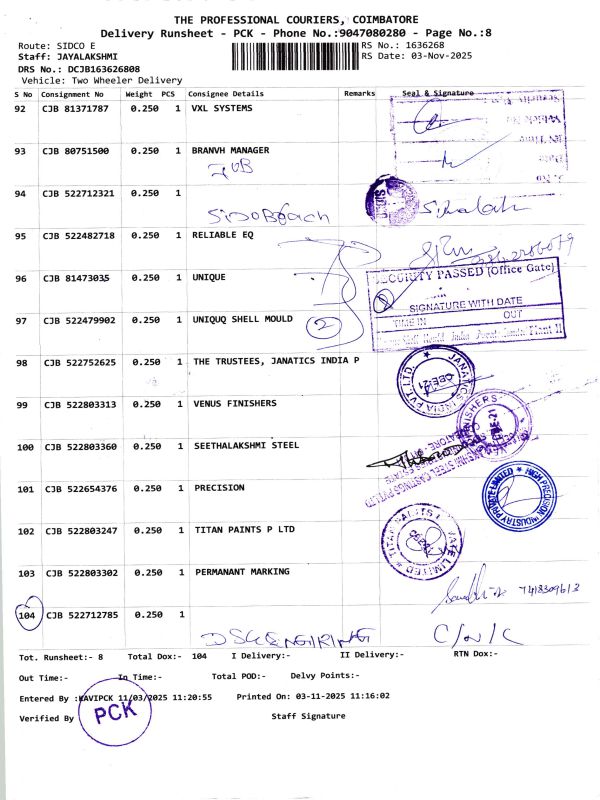 THE PROFESSIONAL COURIERS, COIMBATORE
Delivery Runsheet - PCK - Phone No.:9047080280 - Page No.:8
Route: SIDCO E
RS No.: 1636268
Staff: JAYALAKSHMI
RS Date: 03-Nov-2025
DRS No.: DCJB163626808
Vehicle: Two Wheeler Delivery
S No Consignment No Weight PCS Consignee Details Remarks Seal & Signature
92 CJB 81371787 0.250 1 VXL SYSTEMS
93 CJB 80751500 0.250 1 BRANVH MANAGER
IOB
94 CJB 522712321 0.250 1
95 CJB 522482718 0.250 1 RELIABLE EQ
96 CJB 81473035 0.250 1 UNIQUE
SECURITY PASSED (Office Gate)
SIGNATURE WITH DATE
TIME IN OUT
97 CJB 522479902 0.250 1 UNIQUQ SHELL MOULD
2
98 CJB 522752625 0.250 1 THE TRUSTEES, JANATICS INDIA P
JANATICS INDIA PVT. LTD.
CBE-21
99 CJB 522803313 0.250 1 VENUS FINISHERS
100 CJB 522803360 0.250 1 SEETHALAKSHMI STEEL
101 CJB 522654376 0.250 1 PRECISION
HIGH PRECISION INDUSTRY PRIVATE LIMITED
102 CJB 522803247 0.250 1 TITAN PAINTS P LTD
TITAN PAINTS PRIVATE LIMITED
103 CJB 522803302 0.250 1 PERMANANT MARKING
104 CJB 522712785 0.250 1
C/N/C
Tot. Runsheet:- 8 Total Dox:- 104 I Delivery:- II Delivery:- RTN Dox:-
Out Time:- In Time:- Total POD:- Delvy Points:-
Entered By :KAVIPCK 11/03/2025 11:20:55 Printed On: 03-11-2025 11:16:02
PCK
Verified By Staff Signature